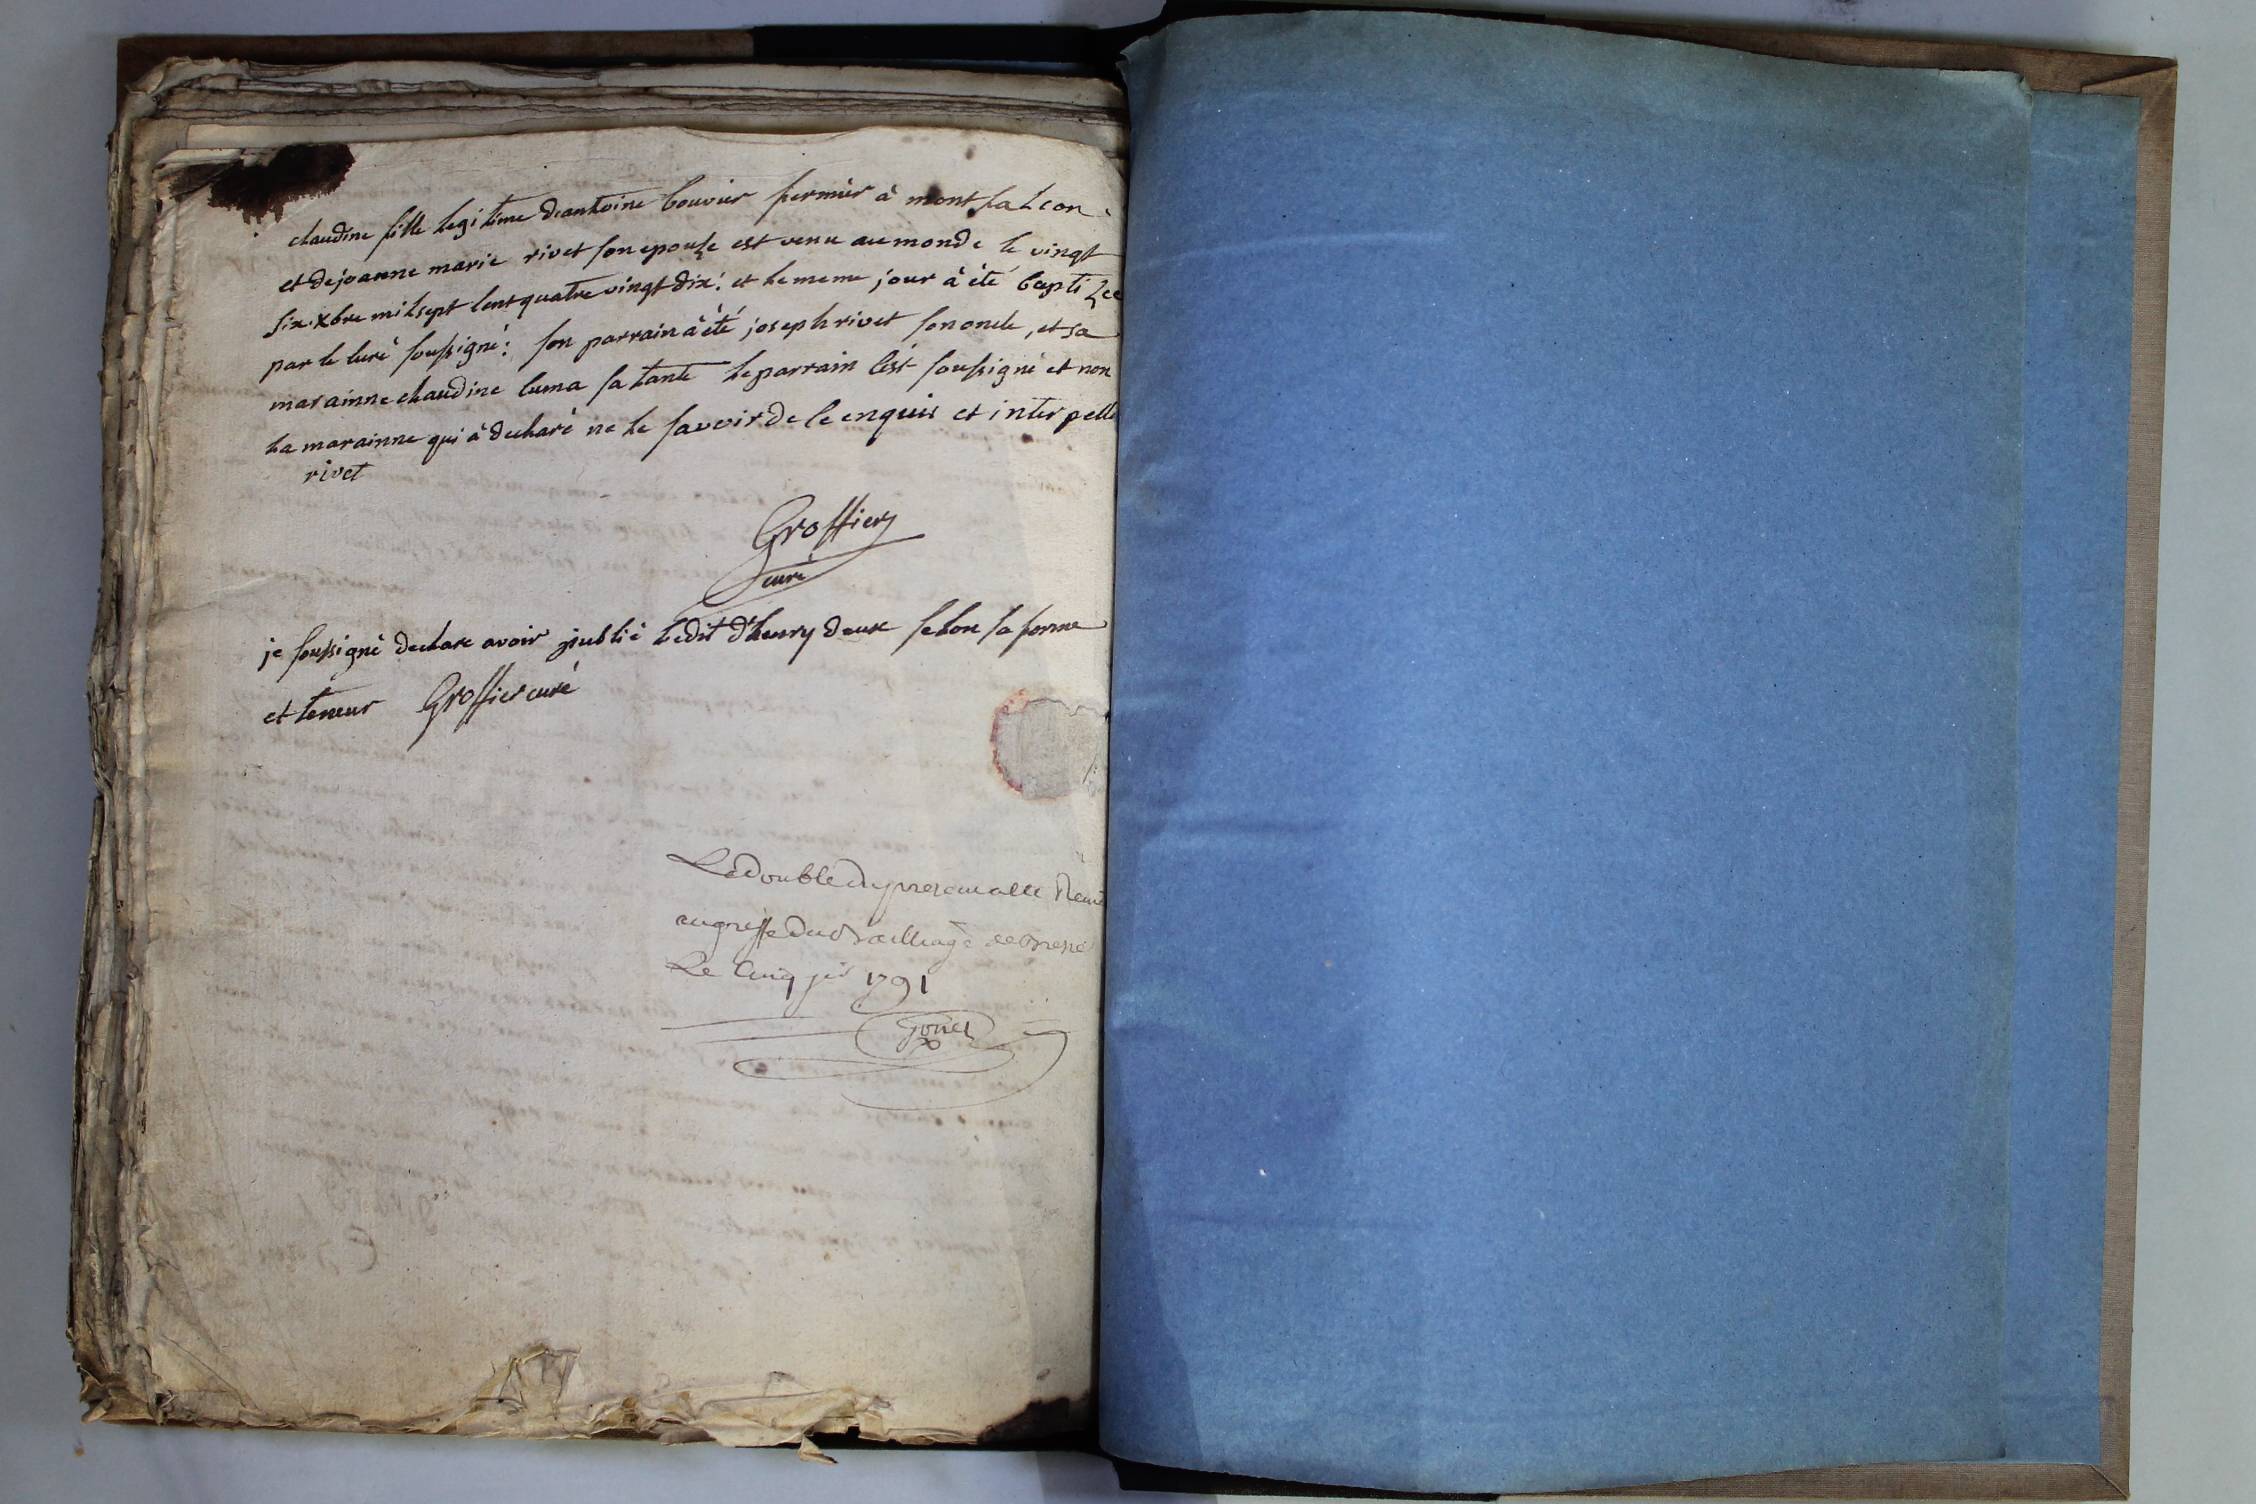 claudine fille legitime deantoine bouvier fermier à montfalcon
et dejoanne marie rivet son epouse est venu au monde le vingt
six xbre mil sept cent quatre vingt dix: et le meme jour à été baptizée
par le curé soussigné: son parrain à été joseph rivet son oncle, et sa
marainne claudine cuma sa tante le parrain c'est soussigné et non
la marainne qui à declaré ne le savoir de ce enquis et interpellé
rivet
Groffier
curé
je soussigné declare avoir publié ledit d'henry deux selon sa forme
et teneur Groffier curé
Le double du present remis
au greffe du Bailliage de Bresse
Le cinq jer 1791